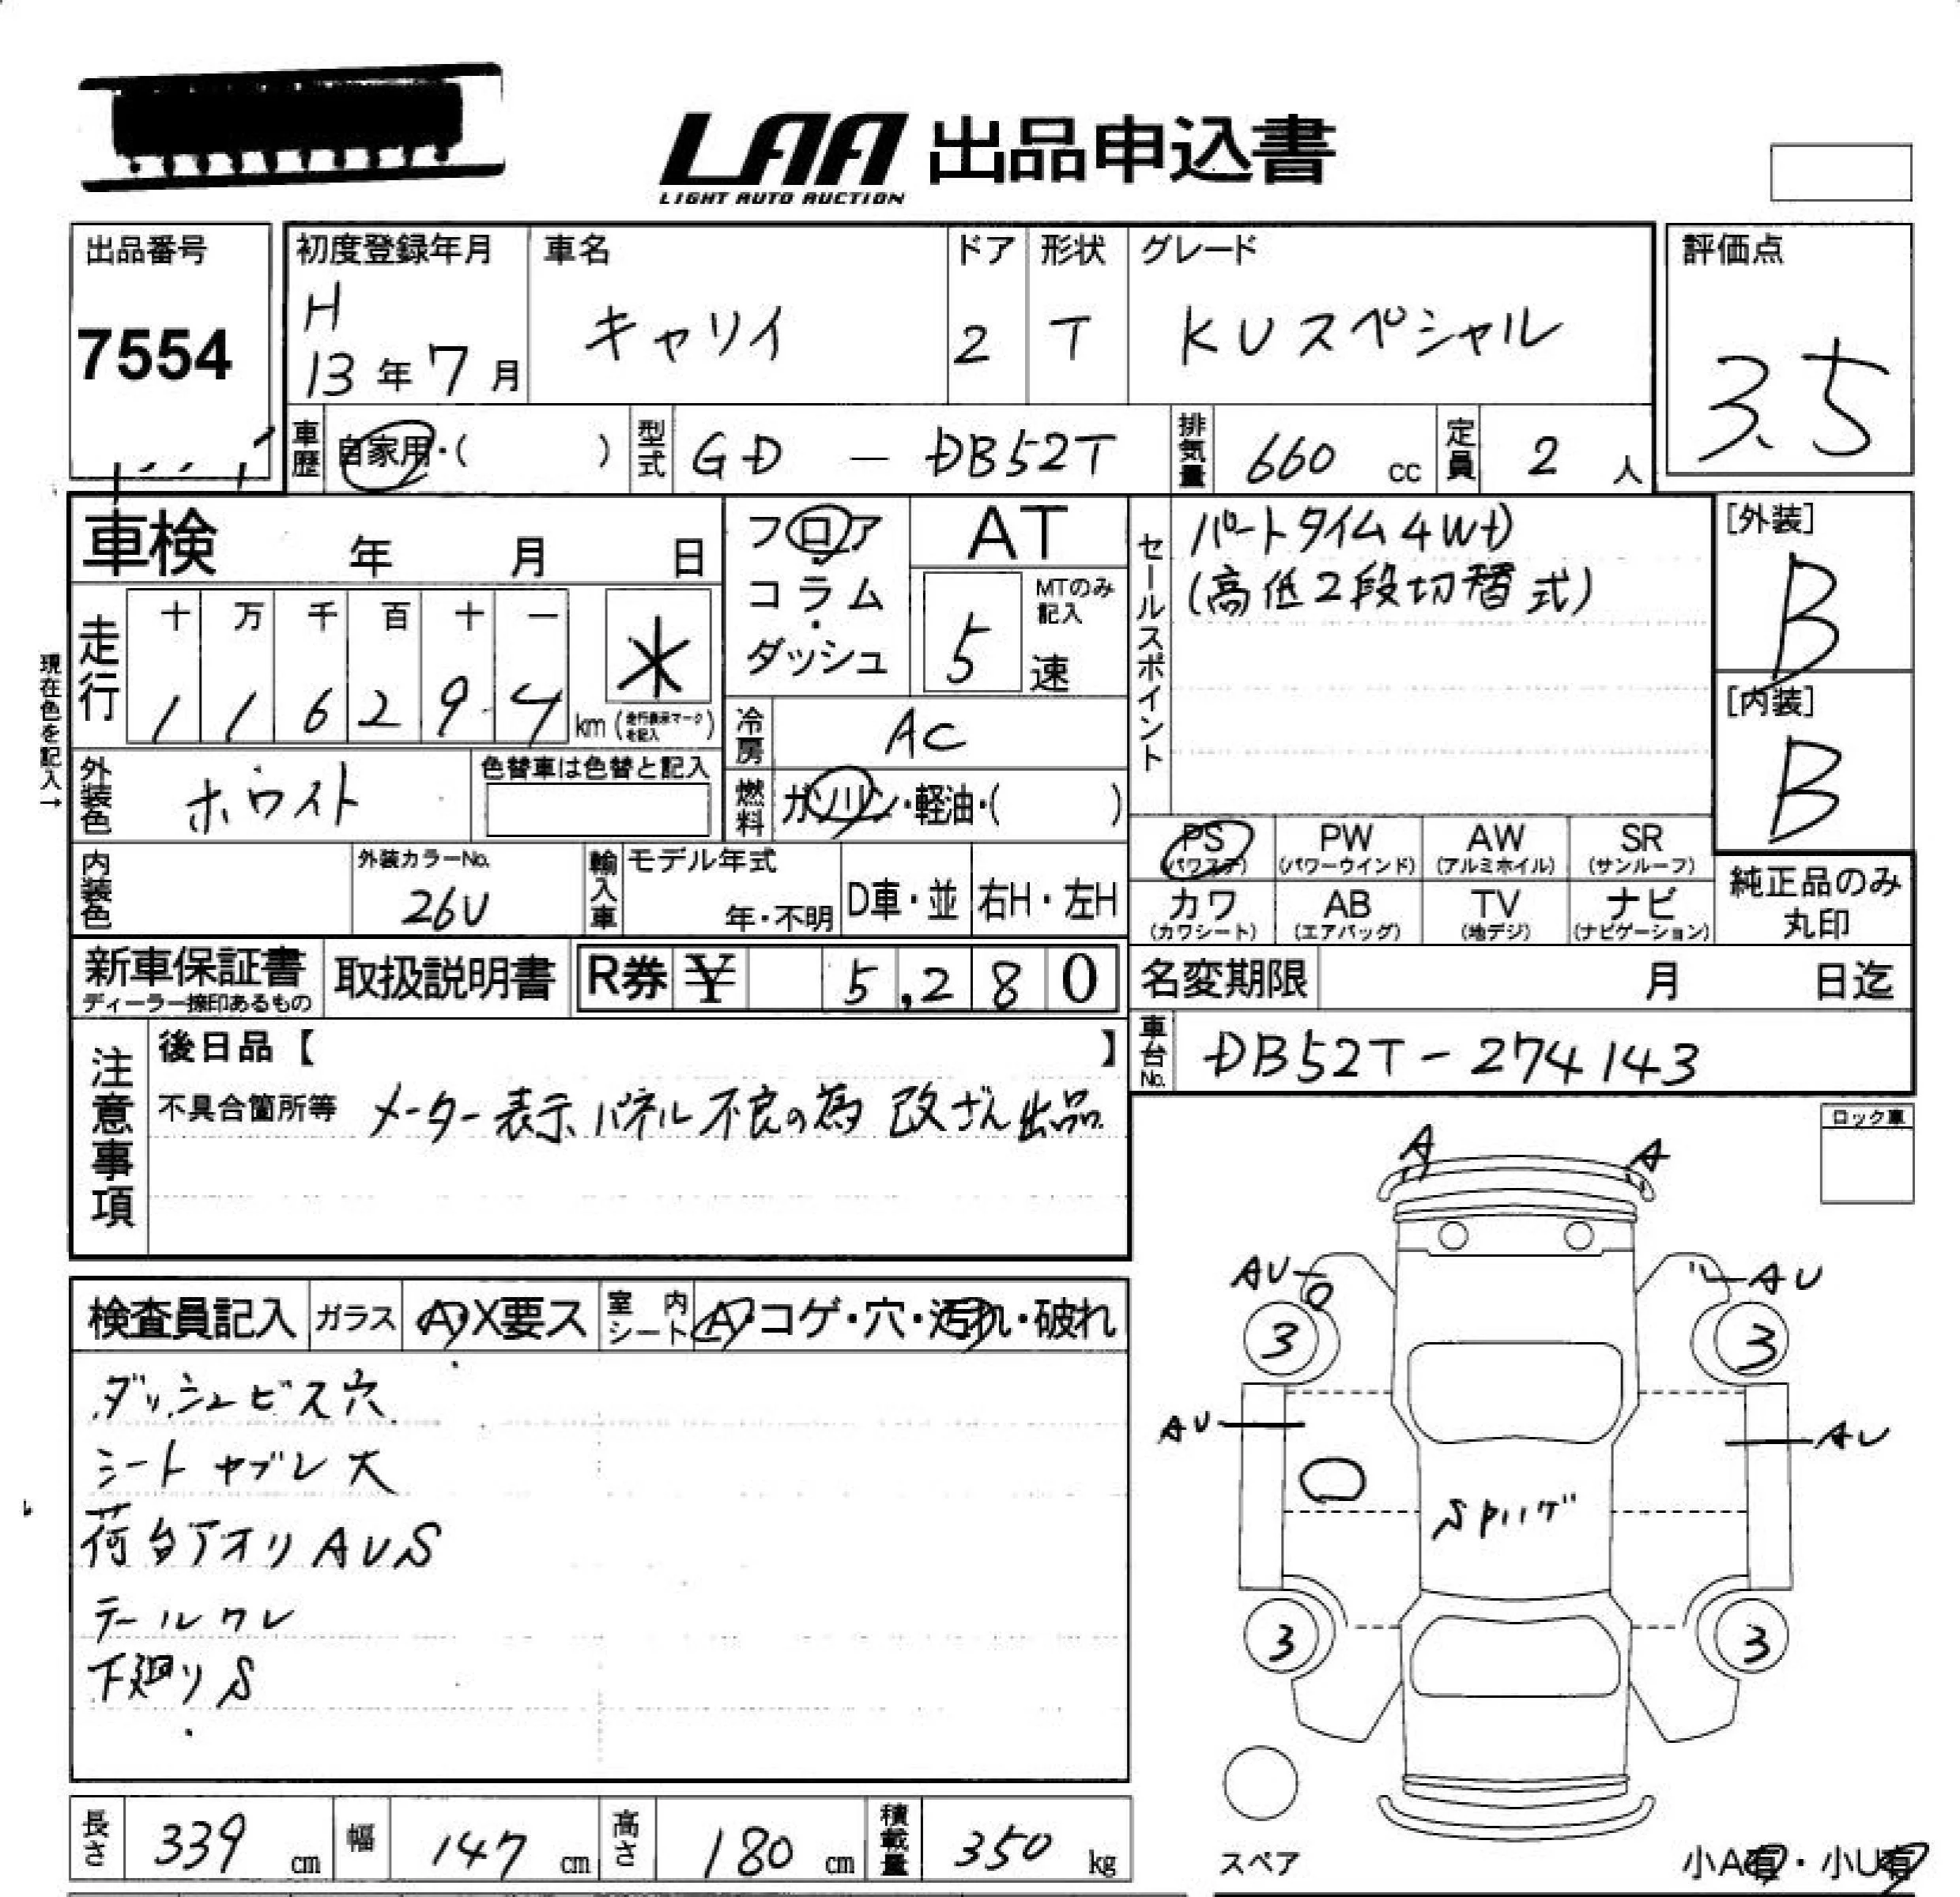 LAA 出品申込書
LIGHT AUTO AUCTION
出品番号
7554
初度登録年月
H
13年7月
車名
キャリイ
ドア
2
形状
T
グレード
KUスペシャル
評価点
3.5
車歴 自家用・( )
型式 GD － DB52T
排気量 660 cc
定員 2 人
車検 年 月 日
フロア・コラム・ダッシュ
AT
MTのみ記入
5速
セールスポイント
パートタイム4WD
(高低2段切替式)
[外装]
B
[内装]
B
現在色を記入→
走行
十 万 千 百 十 一
1 1 6 2 9 4 km
*
(走行表示マークを記入)
冷房 AC
外装色 ホワイト
色替車は色替と記入
燃料 ガソリン・軽油・( )
PS (パワステ)
PW (パワーウインド)
AW (アルミホイル)
SR (サンルーフ)
カワ (カワシート)
AB (エアバッグ)
TV (地デジ)
ナビ (ナビゲーション)
純正品のみ丸印
内装色
外装カラーNo.
26U
輸入車
モデル年式
年・不明
D車・並
右H・左H
新車保証書
ディーラー捺印あるもの
取扱説明書
R券 ¥ 5,280
名変期限 月 日迄
車台No. DB52T-274143
注意事項
後日品【 】
不具合箇所等 メーター表示パネル不良の為 改ざん出品
ロック車
検査員記入
ガラス A・X要ス
室内シート A・コゲ・穴・汚れ・破れ
ダッシュビス穴
シートヤブレ大
荷台アオリAUS
テールワレ
下廻りS
A
A
AU
AU
3
3
AU
AU
3
3
スペア
小A有・小U有
長さ 339 cm
幅 147 cm
高さ 180 cm
積載量 350 kg